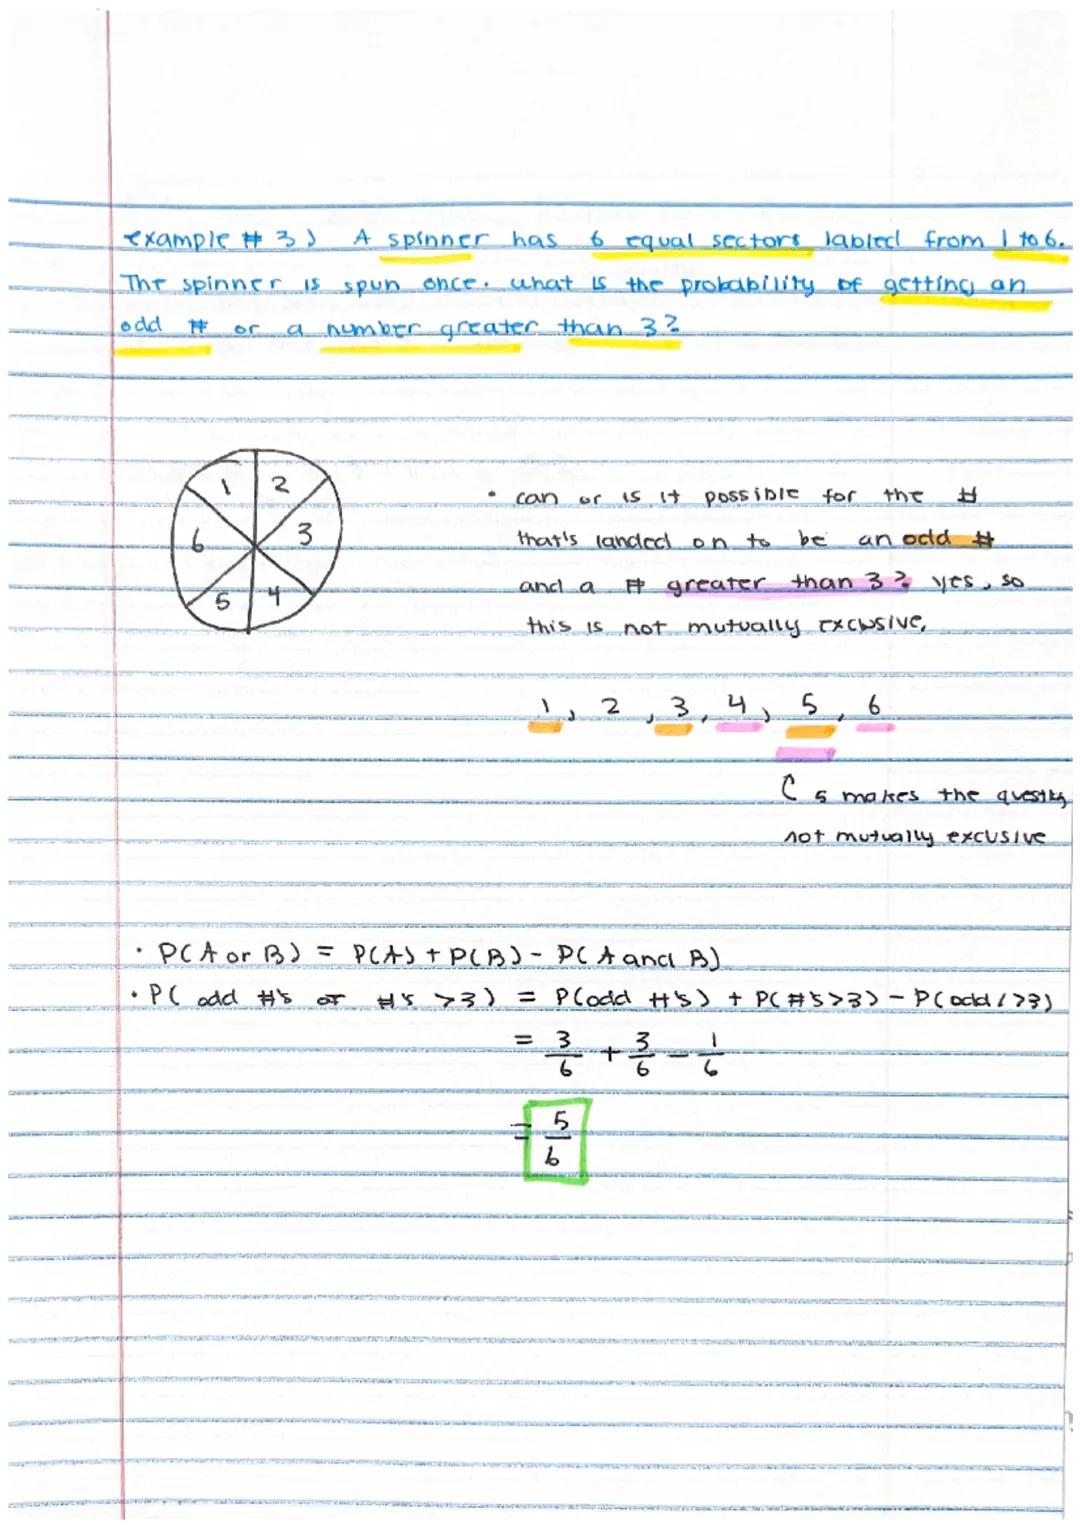 example # 3) A spinner has 6 equal sectors labled from 1 to 6.
The spinner is spun once. what is the probability of getting an
odd # or a number greater than 3?
1 2
6 3
5 4
• can or is it possible for the #
that's landed on to be an odd #
and a # greater than 3? yes, so
this is not mutually exclusive,
1, 2, 3, 4, 5, 6
5 makes the
not mutually exclusive
• P(A or B) = P(A) + P(B) - P(A and B)
• P( odd #'s or #'s >3) = P(odd #'s) + P(#'s>3) - P(odd/>3)
= 3/6 + 3/6 - 1/6
= 5/6